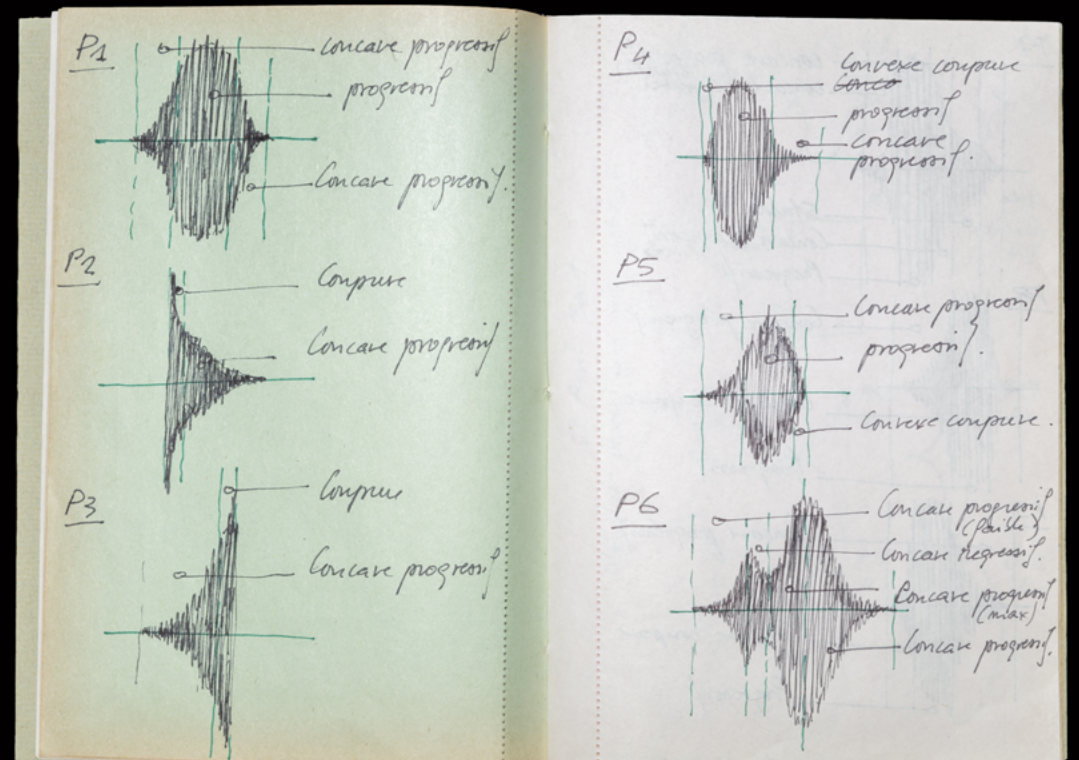 P1
Concave progressif
progressif
Concave progressif.
P2
Comprime
Concave progressif
P3
Comprime
Concave progressif
P4
Convexe comprime
Conca
progressif
Concave
progressif.
P5
Concave progressif
progressif.
Convexe comprime.
P6
Concave progressif
(faible)
Concave regressif.
Concave progressif
(max)
Concave progressif.